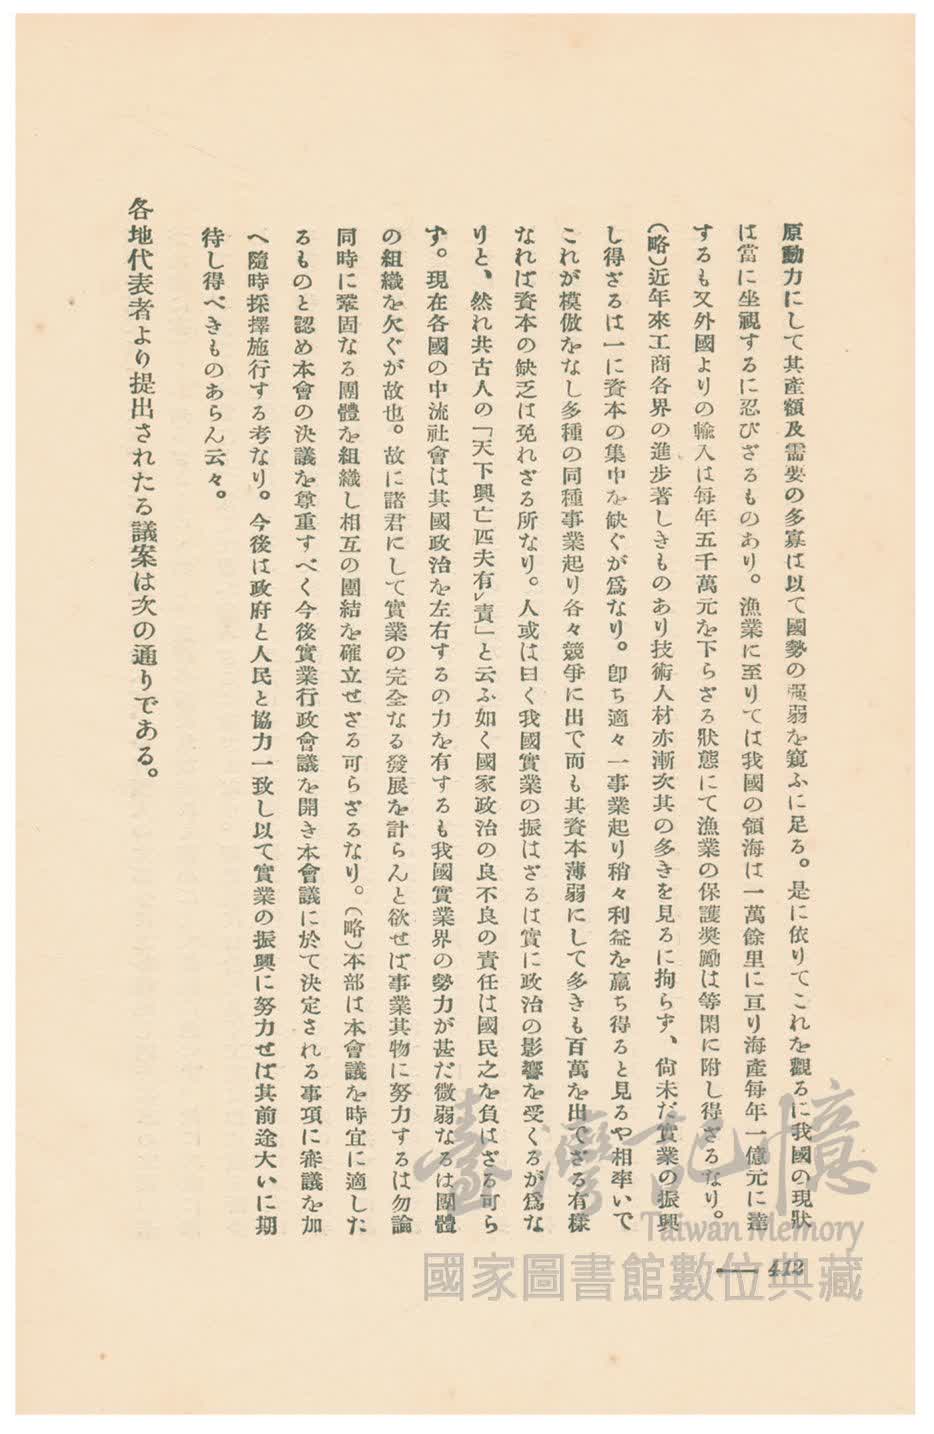 原動力にして其產額及需要の多寡は以て國勢の强弱を窺ふに足る。是に依りてこれを觀るに我國の現狀
は當に坐視するに忍びざるものあり。漁業に至りては我國の領海は一萬餘里に亘り海產每年一億元に達
するも又外國よりの輸入は每年五千萬元を下らざる狀態にて漁業の保護奬勵は等閑に附し得ざるなり。
(略)近年來工商各界の進步著しきものあり技術人材亦漸次其の多きを見るに拘らず、尙未だ實業の振興
し得ざるは一に資本の集中を缺ぐが爲なり。卽ち適々一事業起り稍々利益を贏ち得ると見るや相率いで
これが模倣をなし多種の同種事業起り各々競爭に出で而も其資本薄弱にして多きも百萬を出でざる有樣
なれば資本の缺乏は免れざる所なり。人或は曰く我國實業の振はざるは實に政治の影響を受くるが爲な
りと、然れ共古人の「天下興亡匹夫有レ責」と云ふ如く國家政治の良不良の責任は國民之を負はざる可ら
ず。現在各國の中流社會は其國政治を左右するの力を有するも我國實業界の勢力が甚だ微弱なるは團體
の組織を欠ぐが故也。故に諸君にして實業の完全なる發展を計らんと欲せば事業其物に努力するは勿論
同時に鞏固なる團體を組織し相互の團結を確立せざる可らざるなり。(略)本部は本會議を時宜に適した
るものと認め本會の決議を尊重すべく今後實業行政會議を開き本會議に於て決定される事項に審議を加
へ隨時採擇施行する考なり。今後は政府と人民と協力一致し以て實業の振興に努力せば其前途大いに期
待し得べきものあらん云々。
各地代表者より提出されたる議案は次の通りである。
— 412
臺灣記憶
Taiwan Memory
國家圖書館數位典藏